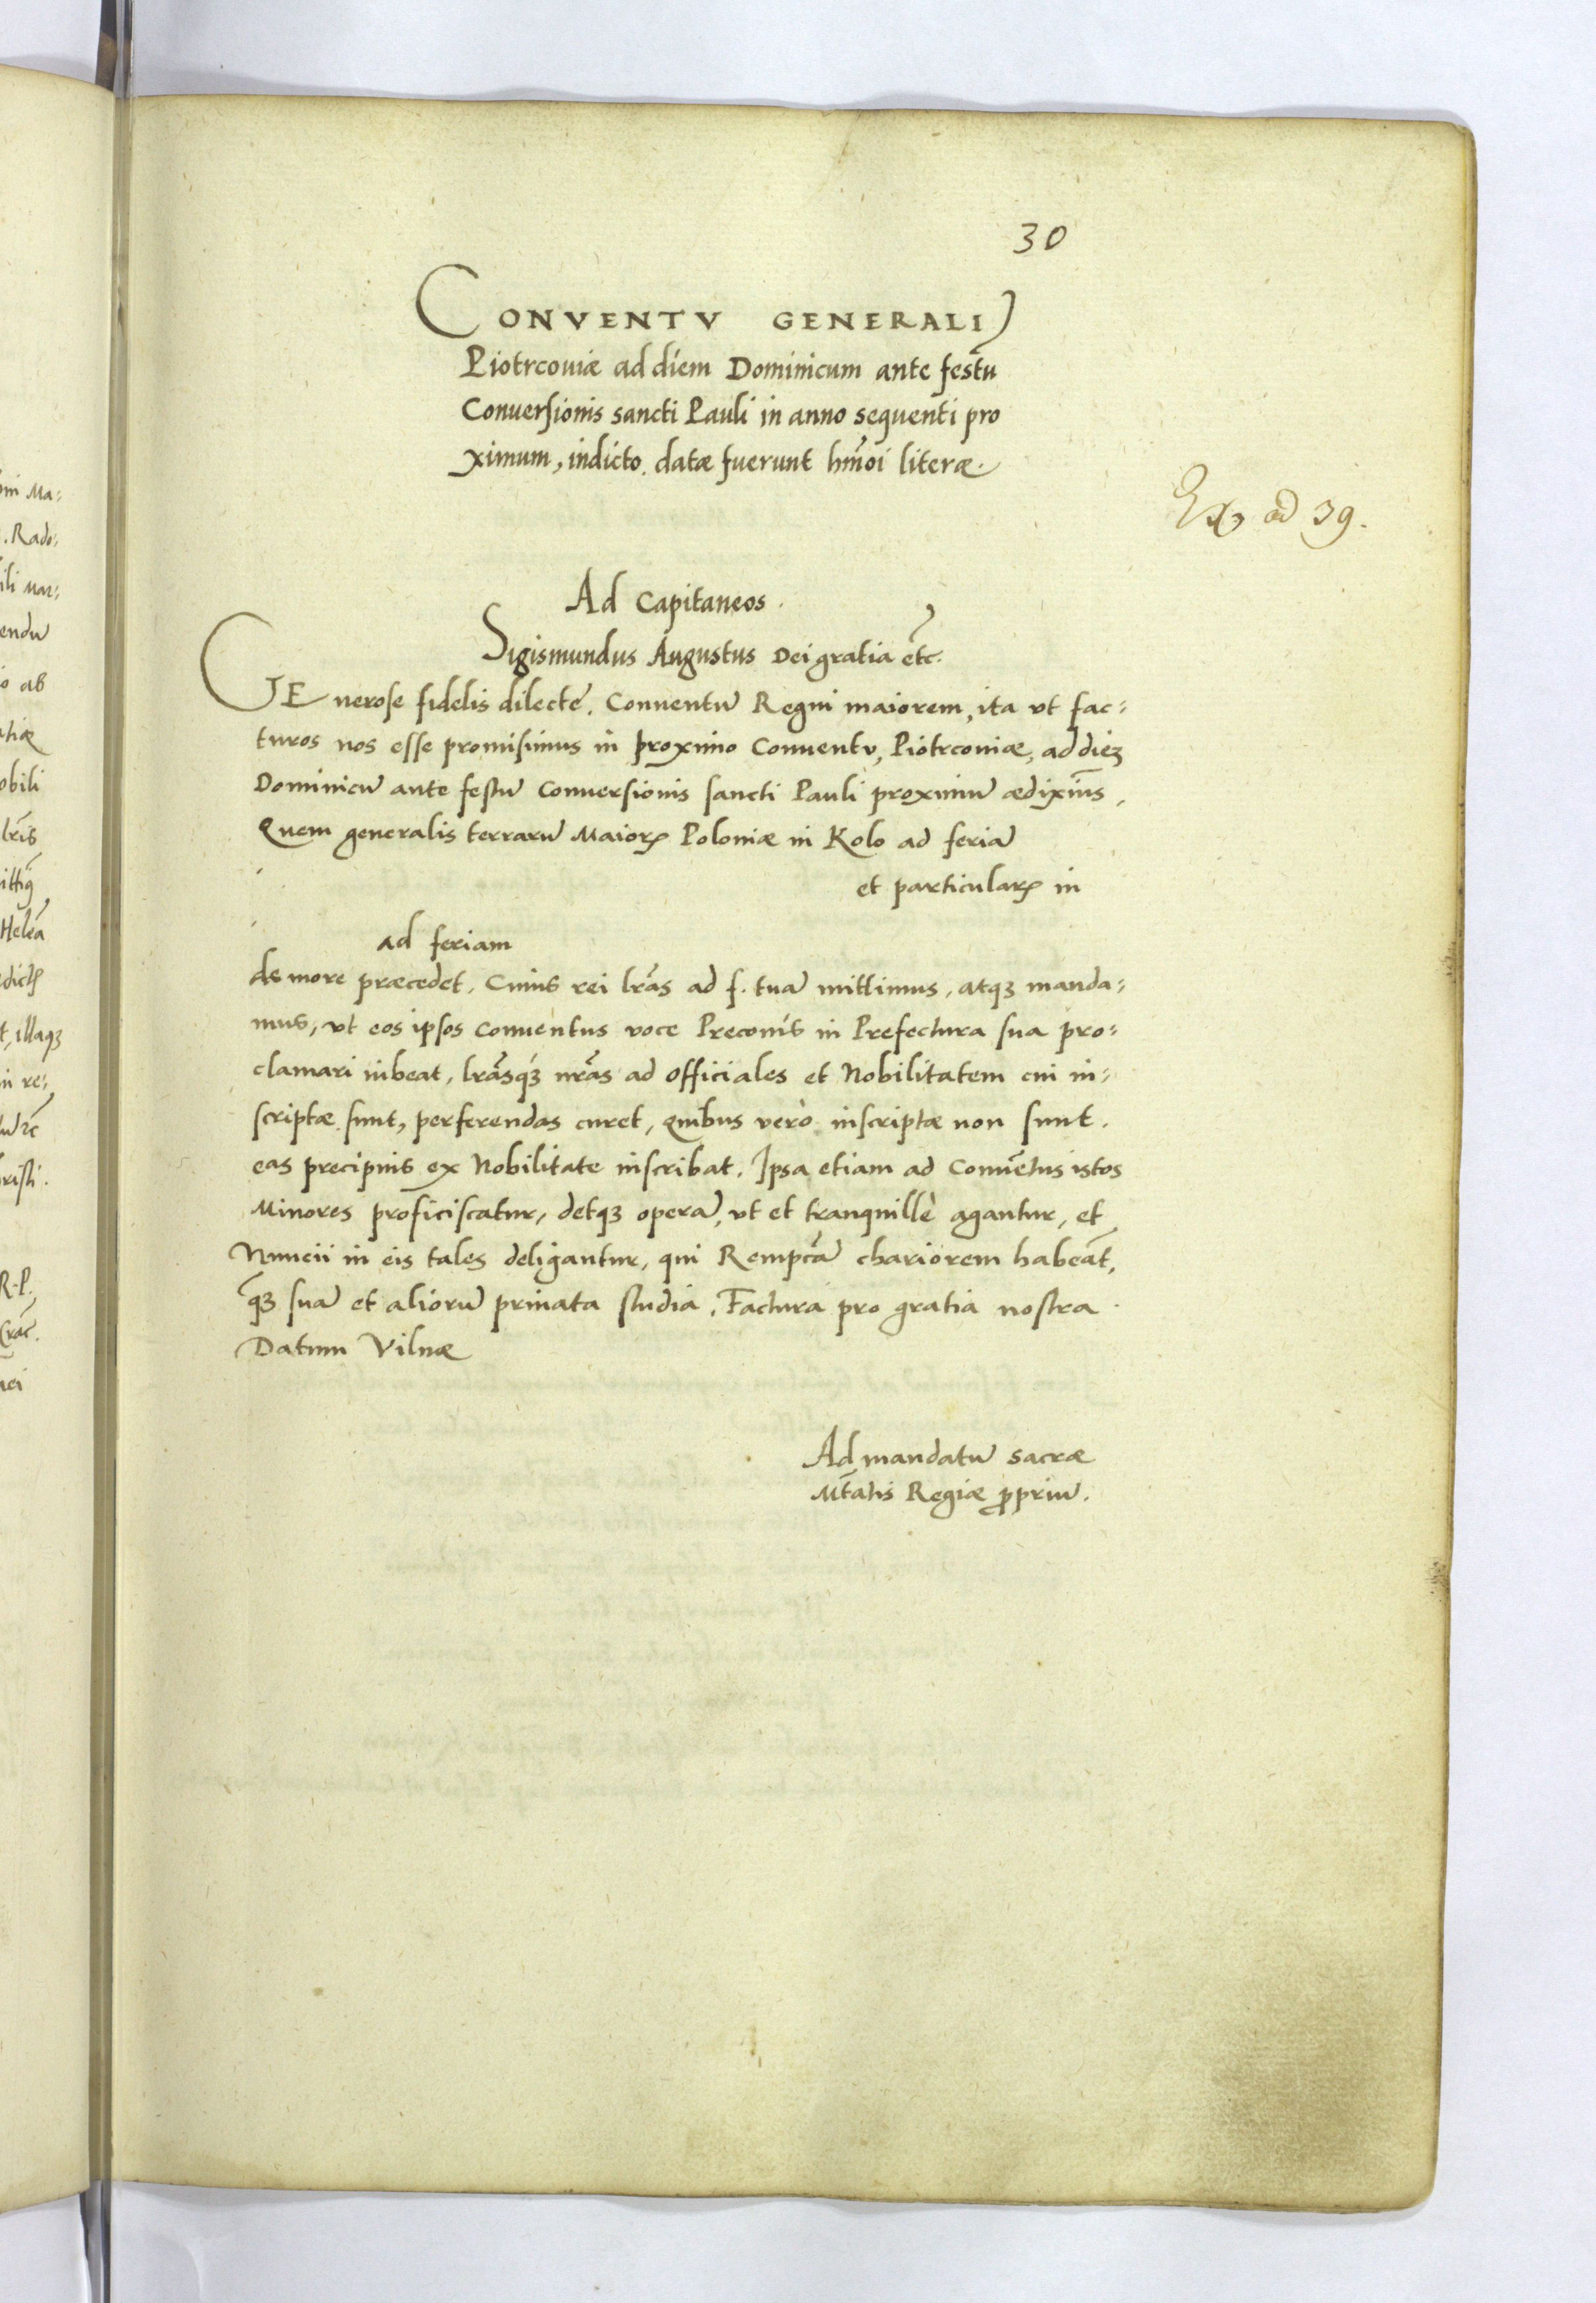 30
CONVENTV GENERALI
Piotrcouiæ ad diem Dominicum ante festū
Conuersionis sancti Pauli in anno sequenti pro
ximum, indicto. datæ fuerunt hm̄oi literæ.
ad 39.
Ad Capitaneos.
Sigismundus Augustus Dei gratia etc̄.
GEnerose fidelis dilecte. Conuentū Regni maiorem, ita vt fac:
turos nos esse promisimus in proximo Conuentv, Piotrcouiæ, ad dieȝ
Dominicū ante festū Conuersionis sancti Pauli proximū ædixim̄s,
Quem generalis terrarū Maiorꝝ Poloniæ in Kolo ad feriā
et particularꝝ in
ad feriam
de more præcedet. Cuius rei lr̄as ad f. tuā mittimus, atqȝ manda:
mus, vt eos ipsos conuentus voce Preconis in Prefectura sua pro:
clamari iubeat, lr̄asqȝ nr̄as ad officiales et Nobilitatem cui in:
scriptæ sunt, perferendas curet, quibus verò inscriptæ non sunt.
eas precipuis ex Nobilitate inscribat. Ipsa etiam ad Conuētus istos
Minores proficiscatur, detqȝ operā, vt et tranquillè agantur, et
Nuncii in eis tales deligantur, qui Rempc̄ā chariorem habeāt,
q̄ȝ suā et aliorū priuata studia. Factura pro gratia nostra.
Datum Vilnæ
Ad mandatū sacræ
Mt̄atis Regiæ ꝓpriū.
oni Ma:
. Rado:
ili Mar:
endū
o ab
obili
lr̄is
Helēa
t, illaqȝ
in re:
risti.
R. P.
Crac̄.